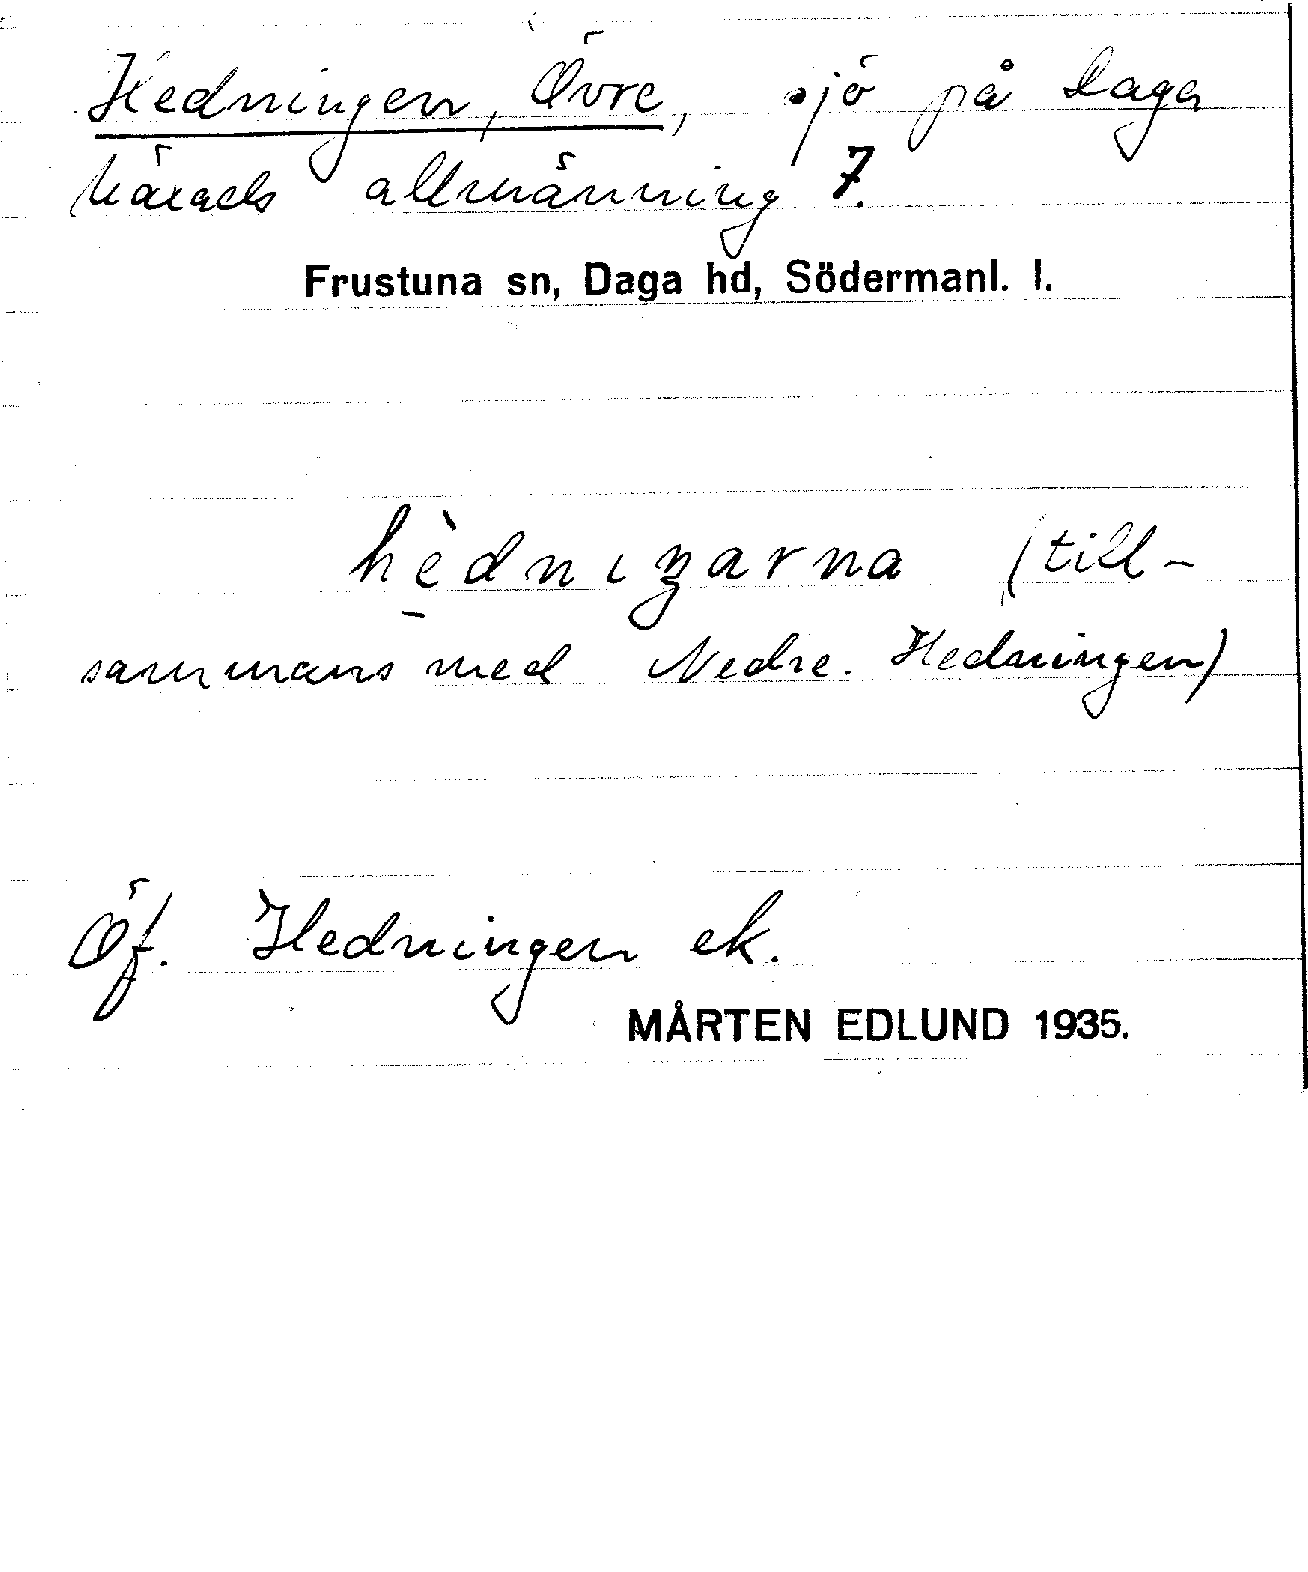 Hedningen, Övre, sjö på Daga
härads allmänning 7.
Frustuna sn, Daga hd, Södermanl. l.
hèdnıŋarna (till-
sammans med Nedre. Hedningen)
Öf. Hedningen ek.
MÅRTEN EDLUND 1935.